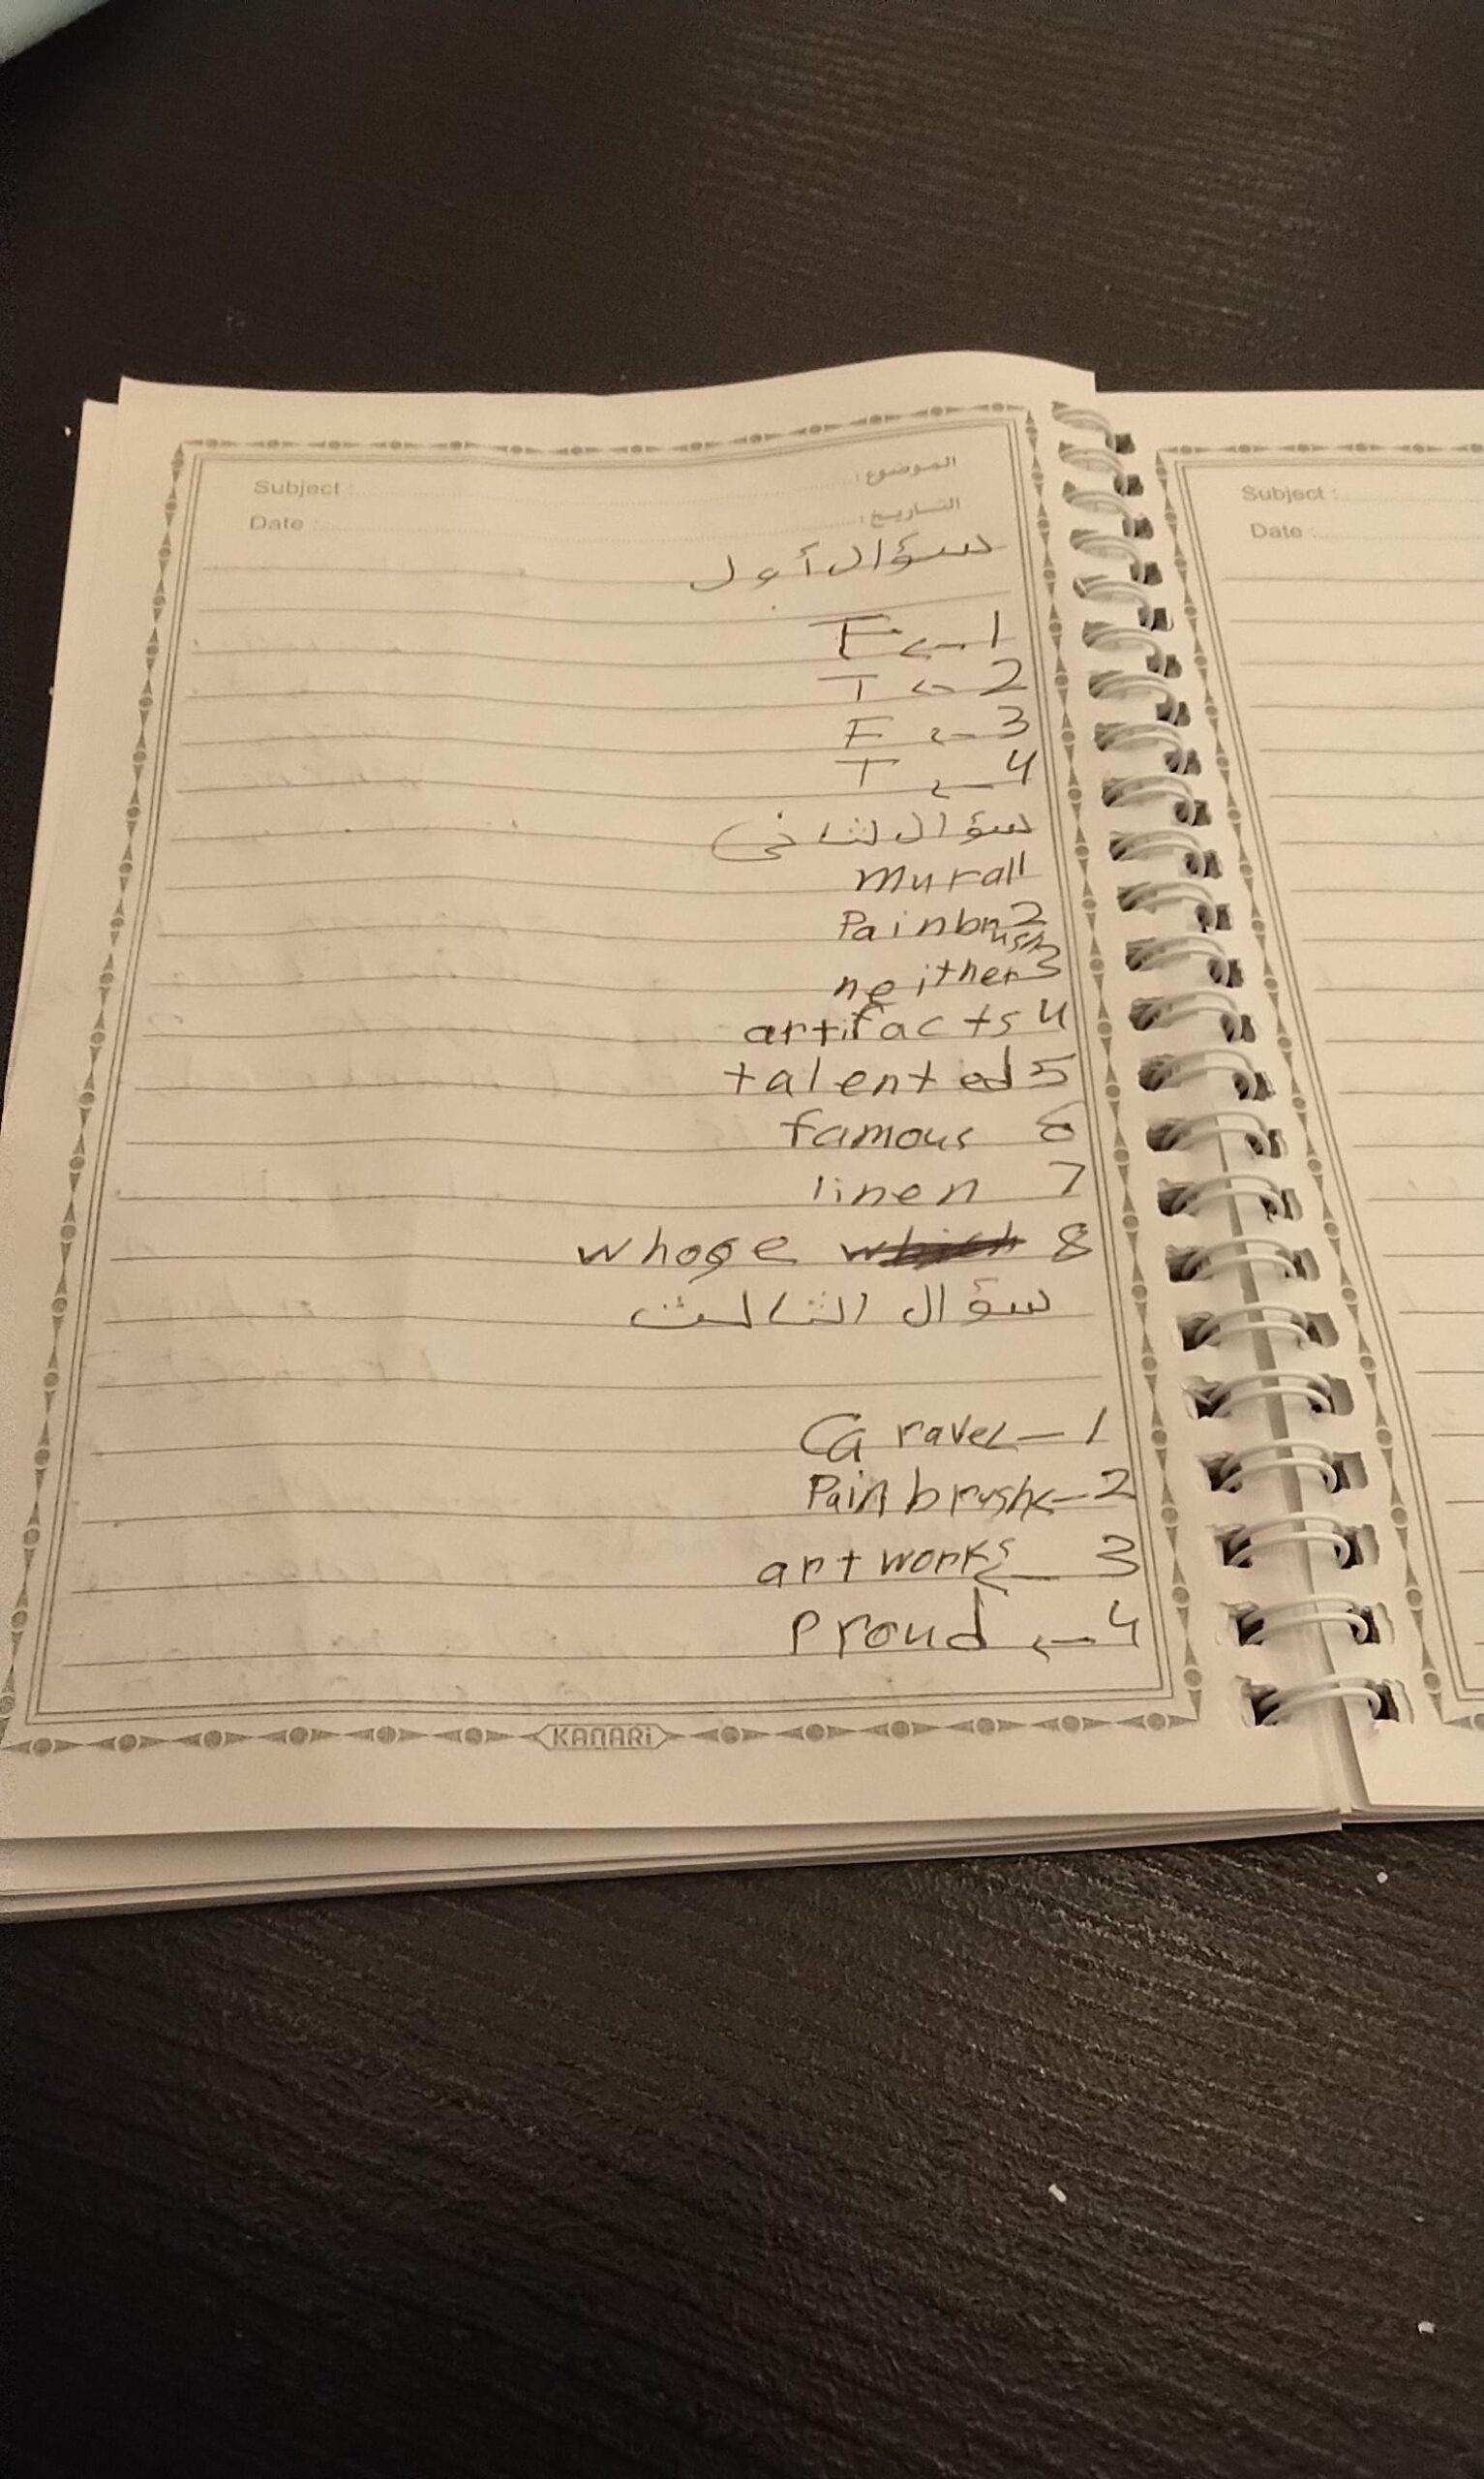 Subject : الموضوع :
Date : التاريخ :
سؤال أول
F ← 1
T ← 2
F ← 3
T ← 4
سؤال لثاني
mural 1
Painbrush 2
neither 3
artifacts 4
talented 5
famous 6
linen 7
whose which 8
سؤال الثالث
Carave ← 1
Painbrush ← 2
artworks ← 3
Proud ← 4
KANARi
Subject :
Date :